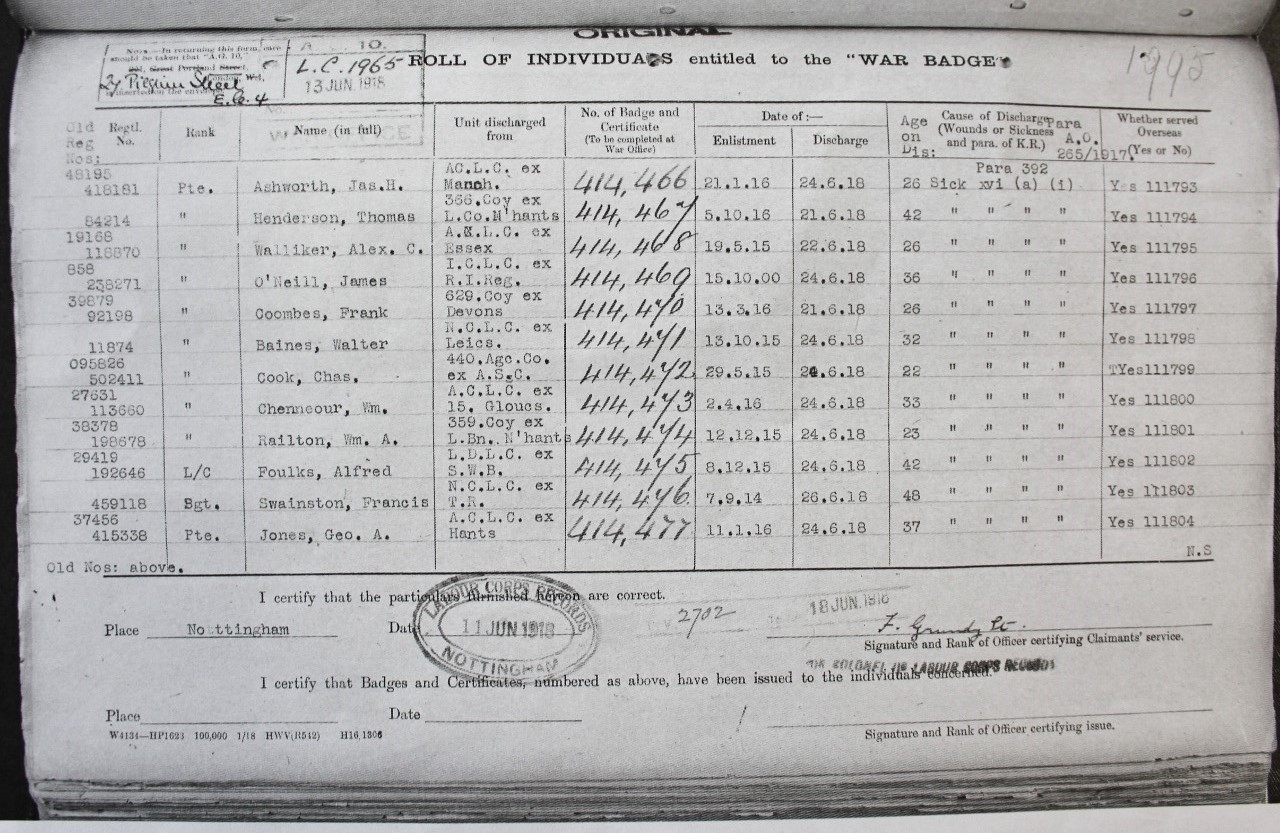 ORIGINAL
NOTE.—In returning this form, care
should be taken that "A.G. 10,"
Great Portland Street,
London, W.1,
27 Pilgrim Street
E.C.4
A 10.
L.C. 1965
13 JUN 1918
ROLL OF INDIVIDUALS entitled to the "WAR BADGE"
1995
Old Reg Nos: Regtl. No. Rank Name (in full) Unit discharged from No. of Badge and Certificate (To be completed at War Office) Date of:— Enlistment Discharge Age on Dis: Cause of Discharge (Wounds or Sickness and para. of K.R.) Para A.O. 265/1917 Whether served Overseas (Yes or No)
48195 AC.L.C. ex Para 392
418181 Pte. Ashworth, Jas.H. Manch. 414,466 21.1.16 24.6.18 26 Sick xvi (a) (i) Yes 111793
366.Coy ex
84214 " Henderson, Thomas L.Co.M'hants 414,467 5.10.16 21.6.18 42 " " " " Yes 111794
19168 ex
118870 " Walliker, Alex. C. Essex 414,468 19.5.15 22.6.18 26 " " " " Yes 111795
858 I.C.L.C. ex
238271 " O'Neill, James R.I.Reg. 414,469 15.10.00 24.6.18 36 " " " " Yes 111796
39879 629.Coy ex
92198 " Coombes, Frank Devons 414,470 13.3.16 21.6.18 26 " " " " Yes 111797
N.C.L.C. ex
11874 " Baines, Walter Leics. 414,471 13.10.15 24.6.18 32 " " " " Yes 111798
095826 440.Agc.Co.
502411 " Cook, Chas. ex A.S.C. 414,472 29.5.15 24.6.18 22 " " " " TYes111799
27631 A.C.L.C. ex
113660 " Chenneour, Wm. 15. Gloucs. 414,473 2.4.16 24.6.18 33 " " " " Yes 111800
38378 359.Coy ex
198678 " Railton, Wm. A. L.Bn. N'hants 414,474 12.12.15 24.6.18 23 " " " " Yes 111801
29419 L.D.L.C. ex
192646 L/C Foulks, Alfred S.W.B. 414,475 8.12.15 24.6.18 42 " " " " Yes 111802
N.C.L.C. ex
459118 Sgt. Swainston, Francis T.R. 414,476 7.9.14 26.6.18 48 " " " " Yes 111803
37456 A.C.L.C. ex
415338 Pte. Jones, Geo. A. Hants 414,477 11.1.16 24.6.18 37 " " " " Yes 111804
N.S
Old Nos: above.
I certify that the particulars furnished hereon are correct.
Place No ttingham Date
LABOUR CORPS RECORDS
11 JUN 1918
NOTTINGHAM
2702
18 JUN 1918
F. Grundy Lt.
Signature and Rank of Officer certifying Claimants' service.
COLONEL I/C LABOUR CORPS RECORDS
I certify that Badges and Certificates, numbered as above, have been issued to the individuals concerned.
Place Date
Signature and Rank of Officer certifying issue.
W4134—HP1623 100,000 1/18 HWV(R542) H16/1306